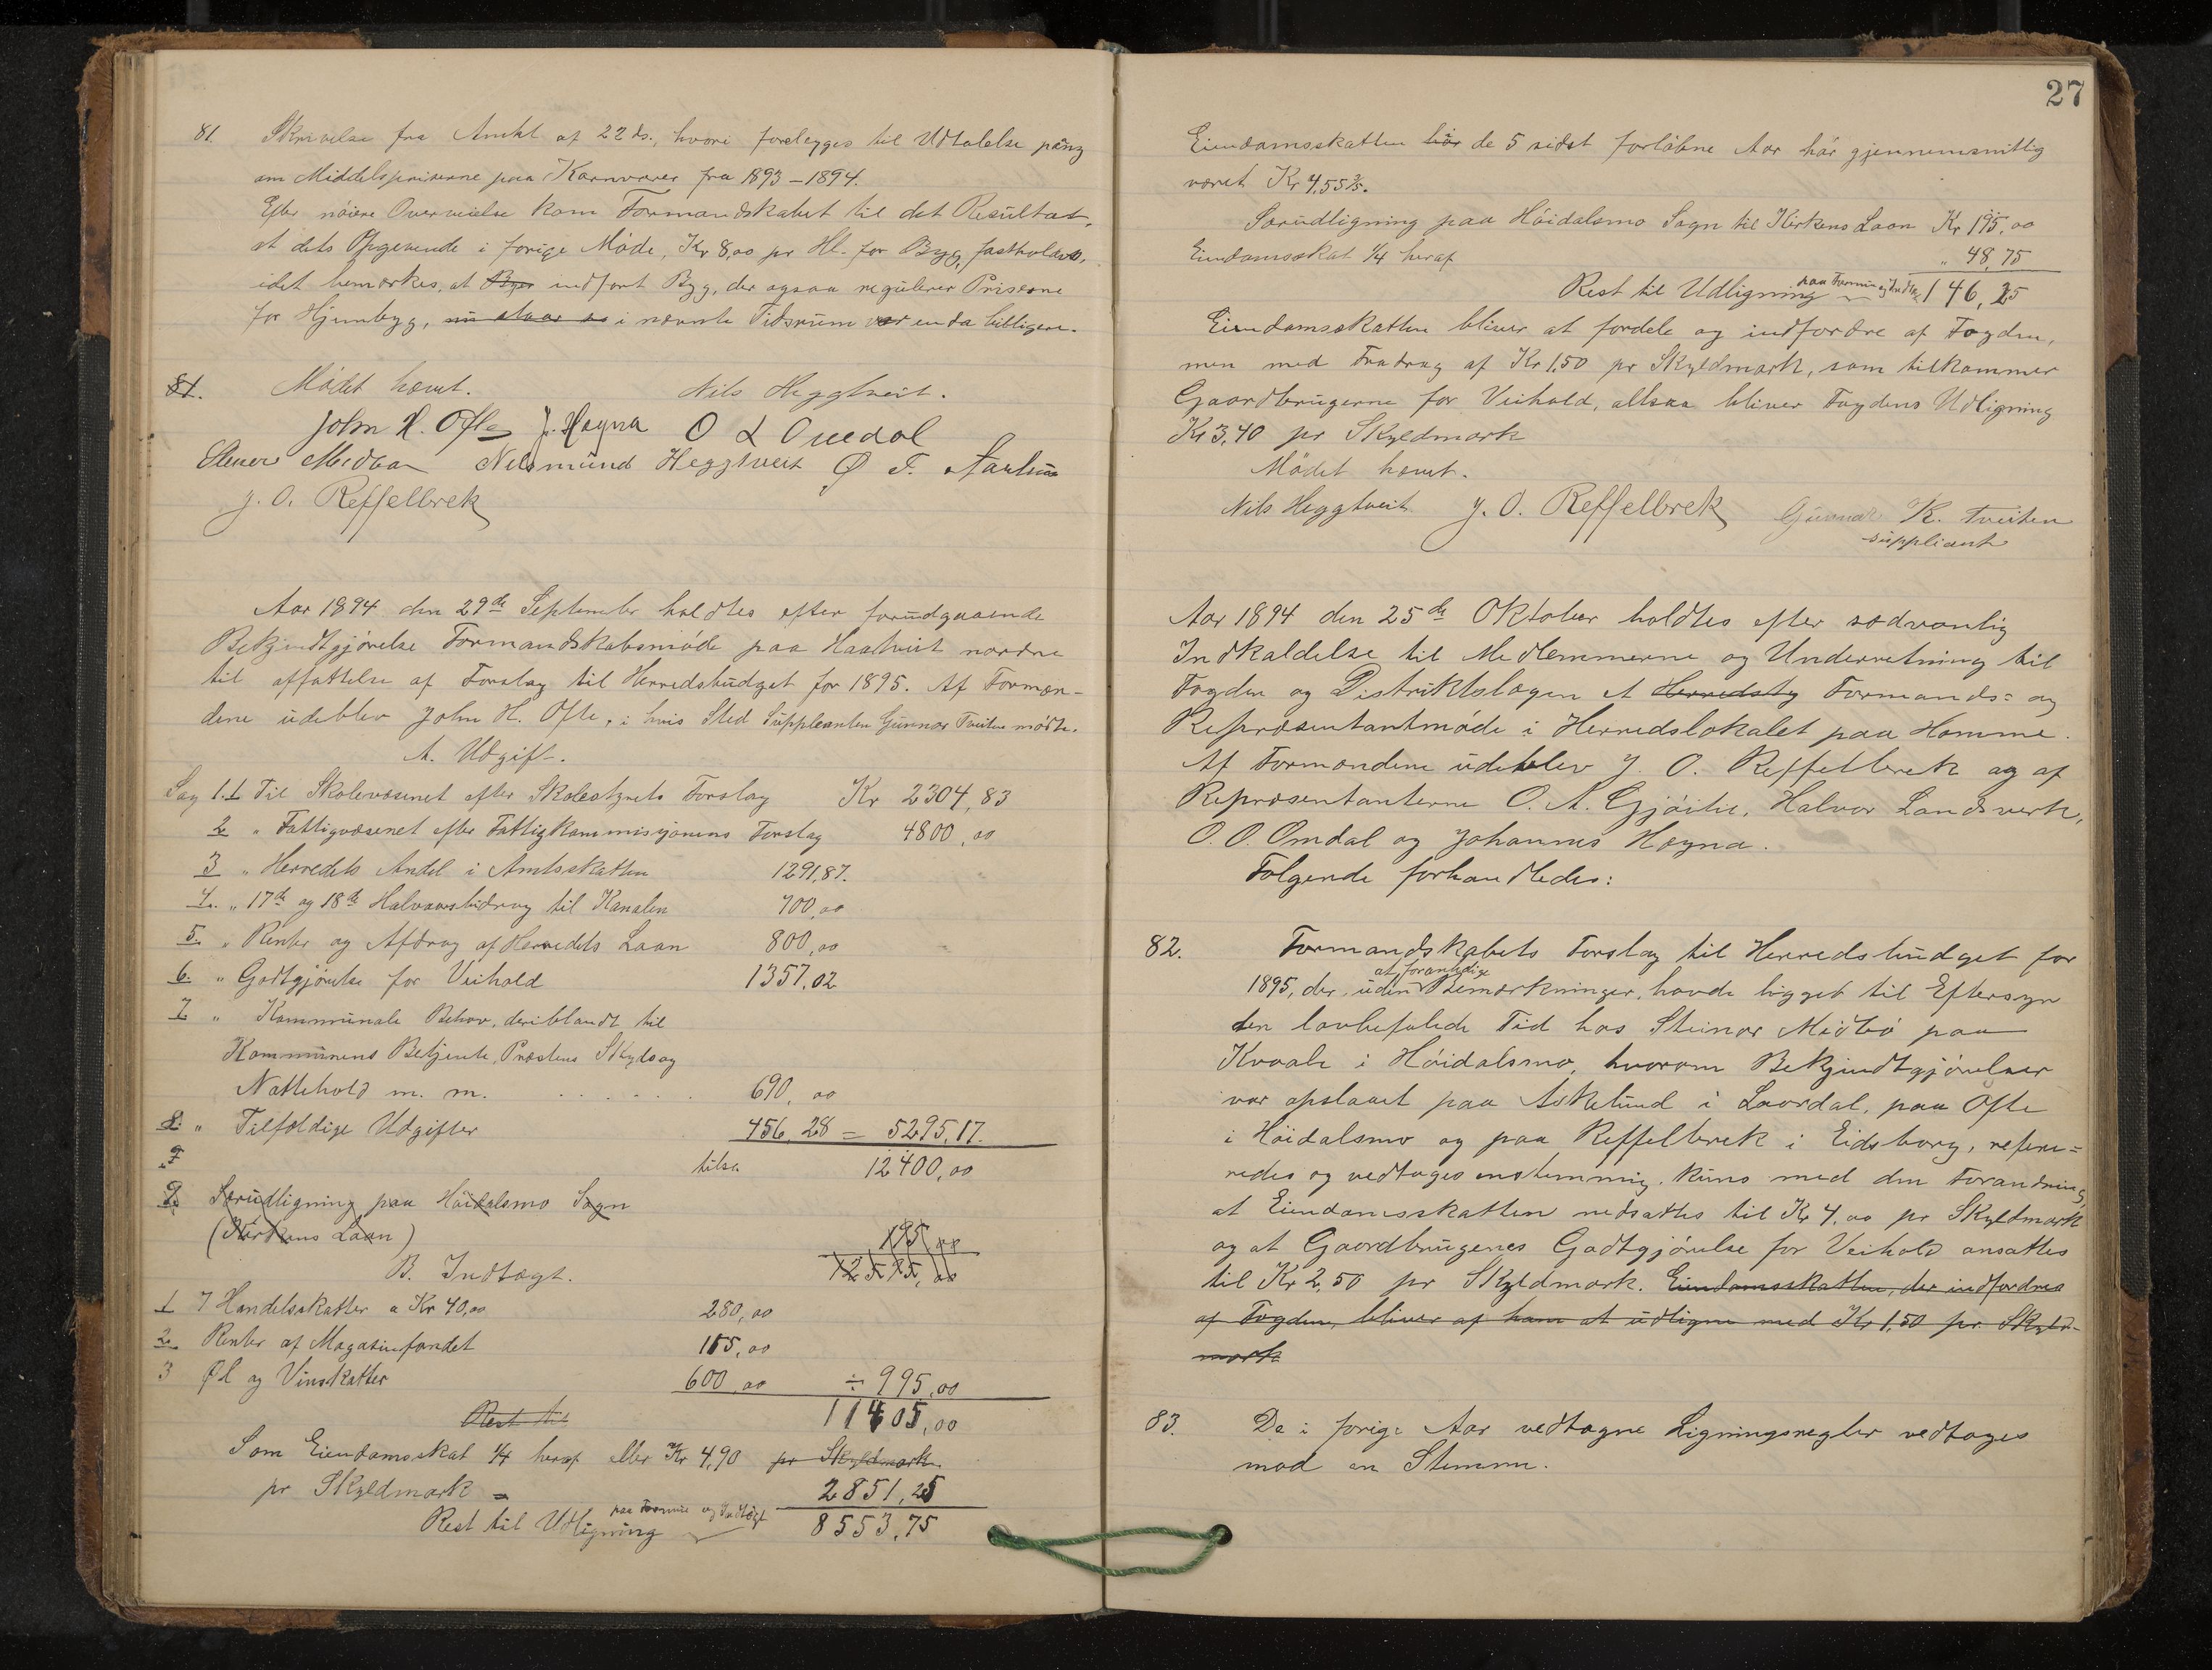 81. Skrivelse fra Amtet af 22 ds., hvori forelægges til Udtalelse
om Middelspriserne paa Kornvarer fra 1893-1894.
Efter nöiere Overveielse kom Formandskabet til det Resultat,
at dets Opgivende i forige Möde, Kr 8,00 pr Hl. for Byg, fastholdes,
idet bemærkes, at Byg indfört Byg, der ogsaa regulerer Priserne
for Hjembyg, i nævnte Tidsrum var enda billigere.
81. Mödet hævet. Nils Heggtveit.
John H. Ofte J. Høgna O L Omdal
Steinar Midbø Nilsmund Heggtveit Ø T.
J. O. Reffelbrek
Aar 1894 den 29de September holdtes efter forudgaaende
Bekjendtgjörelse Formandskabsmöde paa Haatveit nordre
til affattelse af Forslag til Herredsbudget for 1895. Af Formæn-
dene udeblev John H. Ofte, i hvis Sted Suppleanten Gunnar Tveiten mödte.
A. Udgift.
Sag 1. 1 Til Skolevæsenet efter Skolestyrets Forslag Kr 2304,83
2 " Fattigvæsenet efter Fattigkommisjonens Forslag 4800,00
3 " Herredets Andel i Amtsskatten 1291,87.
4. " 17de og 18de Halvaarsbidrag til Kanalen 700,00
5. " Renter og Afdrag af Herredets Laan 800,00
6. " Godtgjörelse for Veihold 1357,02
7 " Kommunale Behov, deriblandt til
Kommunens Betjente, Præstens Skyds og
Nattehold m. m. . . . . . . 690,00
8. " Tilfældige Udgifter 456,28 = 5295,17.
tilsa 12400,00
9. Særudligning paa Höidalsmo Sogn
(Kirkens Laan) 195,00
12595,00
B. Indtægt.
1 7 Handelsskatter a Kr 40,00 280,00
2 Renter af Magasinfondet 115,00
3 Øl og Vinskatter 600,00 ÷ 995,00
Rest til 11405,00
Som Eiendomsskat 1/4 heraf eller Kr 4,90 pr Skyldmark
pr Skyldmark = 2851,25
Rest til Udligning paa Formue og Indtægt 8553,75
27
Eiendomsskatten har de 5 sidst forløbne Aar har gjennemsnitlig
været Kr 4,55 3/5.
Særudligning paa Höidalsmo Sogn til Kirkens Laan Kr 195,00
Eiendomsskat 1/4 heraf " 48,75
Rest til Udligning paa Formue og Indtægt 146,25
Eiendomsskatten bliver at fordele og indfordre af Fogden,
men med Fradrag af Kr 1,50 pr Skyldmark, som tilkommer
Gaardbrugerne for Veihold, altsaa bliver Fogdens Udligning
Kr 3,40 pr Skyldmark
Mödet hævet.
Nils Heggtveit J. O. Reffelbrek Gunnar K. Tveiten
suppliant
Aar 1894 den 25de Oktober holdtes efter sædvanlig
Indkaldelse til Medlemmerne og Underretning til
Fogden og Distriktslægen et Herredsty Formands= og
Repræsentantmöde i Herredslokalet paa Homme.
Af Formændene udeblev J. O. Reffelbrek og af
Repræsentanterne O. A. Gjöitil, Halvor Landsverk,
O. O. Omdal og Johannes Høgna.
Følgende forhandledes:
82. Formandskabets Forslag til Herredsbudget for
1895, der, uden at foranledige Bemærkninger, havde ligget til Eftersyn
den lovbefalede Tid hos Steinar Midbö paa
Kvaale i Höidalsmo, hvorom Bekjendtgjörelser
var opslaaet paa Askelund i Laardal, paa Ofte
i Höidalsmo og paa Reffelbrek i Eidsborg, refere=
redes og vedtoges enstemmig, kuns med den Forandring,
at Eiendomsskatten nedsattes til Kr 4,00 pr Skyldmark
og at Gaardbrugenes Godtgjörelse for Veihold ansattes
til Kr 2,50 pr Skyldmark. Eiendomsskatten, der indfordres
af Fogden, bliver af ham at udligne med Kr 1,50 pr Skyld-
mark
83. De i forige Aar vedtagne Ligningsregler vedtoges
mod en Stemme.